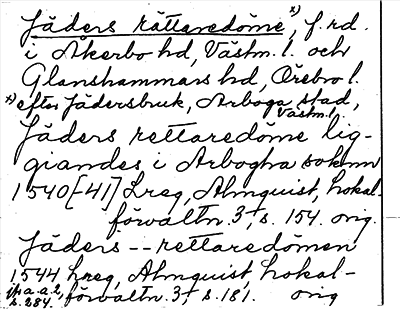 Jäders rättaredöme x), f.rd.
i Åkerbo hd, Västm. l. och
Glanshammars hd, Örebro l.
x) efter Jädersbruk, Arboga stad,
Västm. l.
Jäders rettaredöme lig-
giandes i Arbogha soknn
1540[-41] Lreg, Almquist, Lokal-
förvaltn. 3:1, s. 154. orig.
Jäders -- rettaredömen
1544 Lreg, Almquist, Lokal-
jfr a.a. 2, förvaltn. 3:1, s. 181. orig
s. 284.